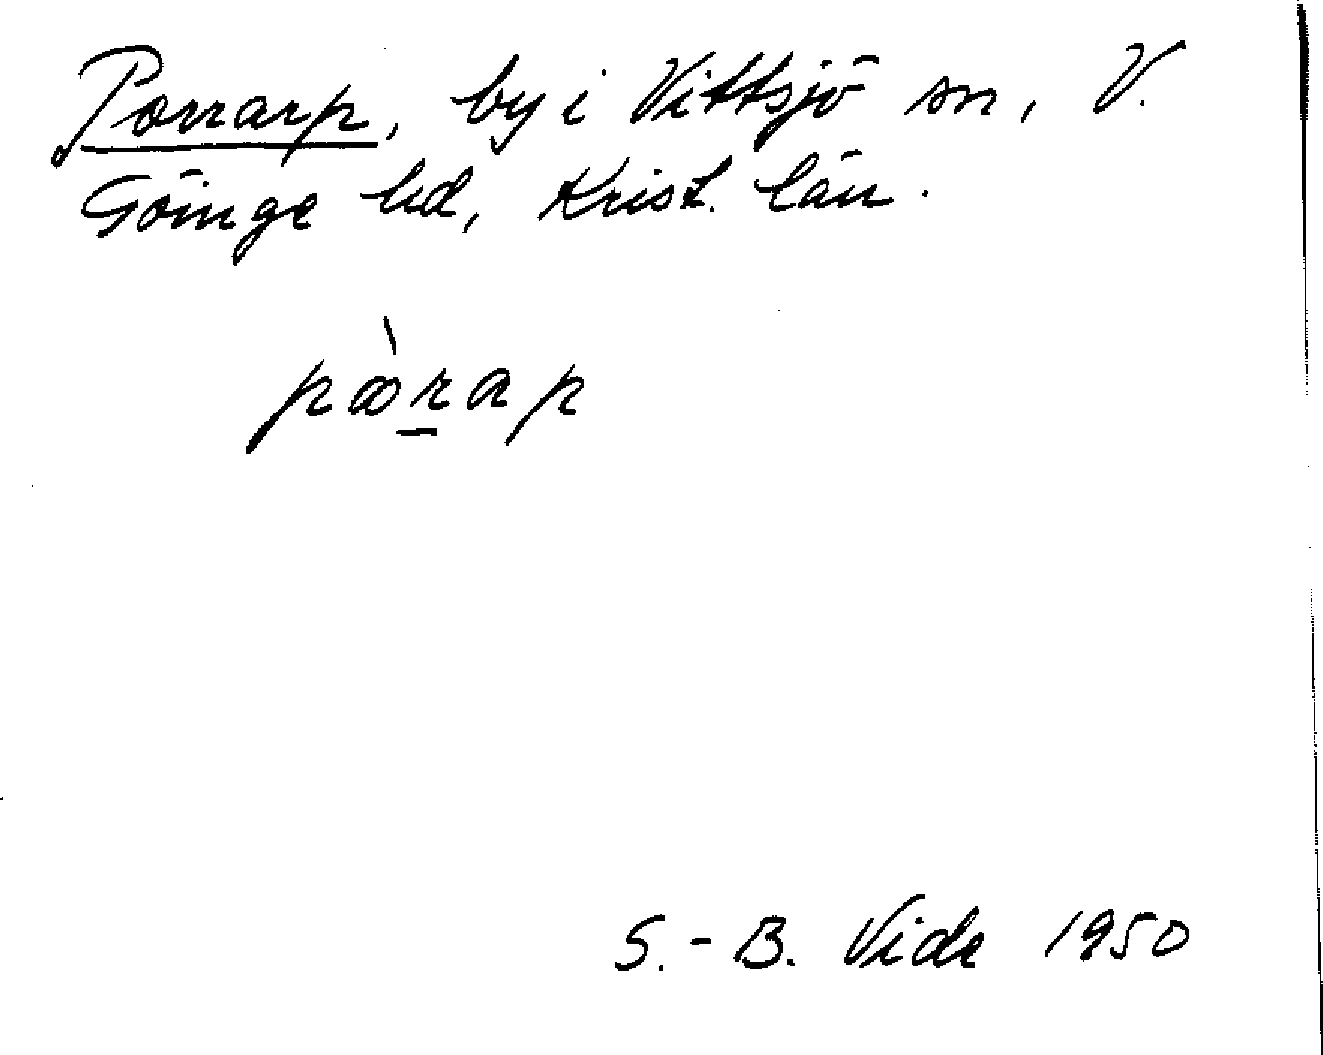 Porrarp, by i Vittsjö sn, V.
Göinge hd, Krist. län.
pòrap
S.-B. Vide 1950